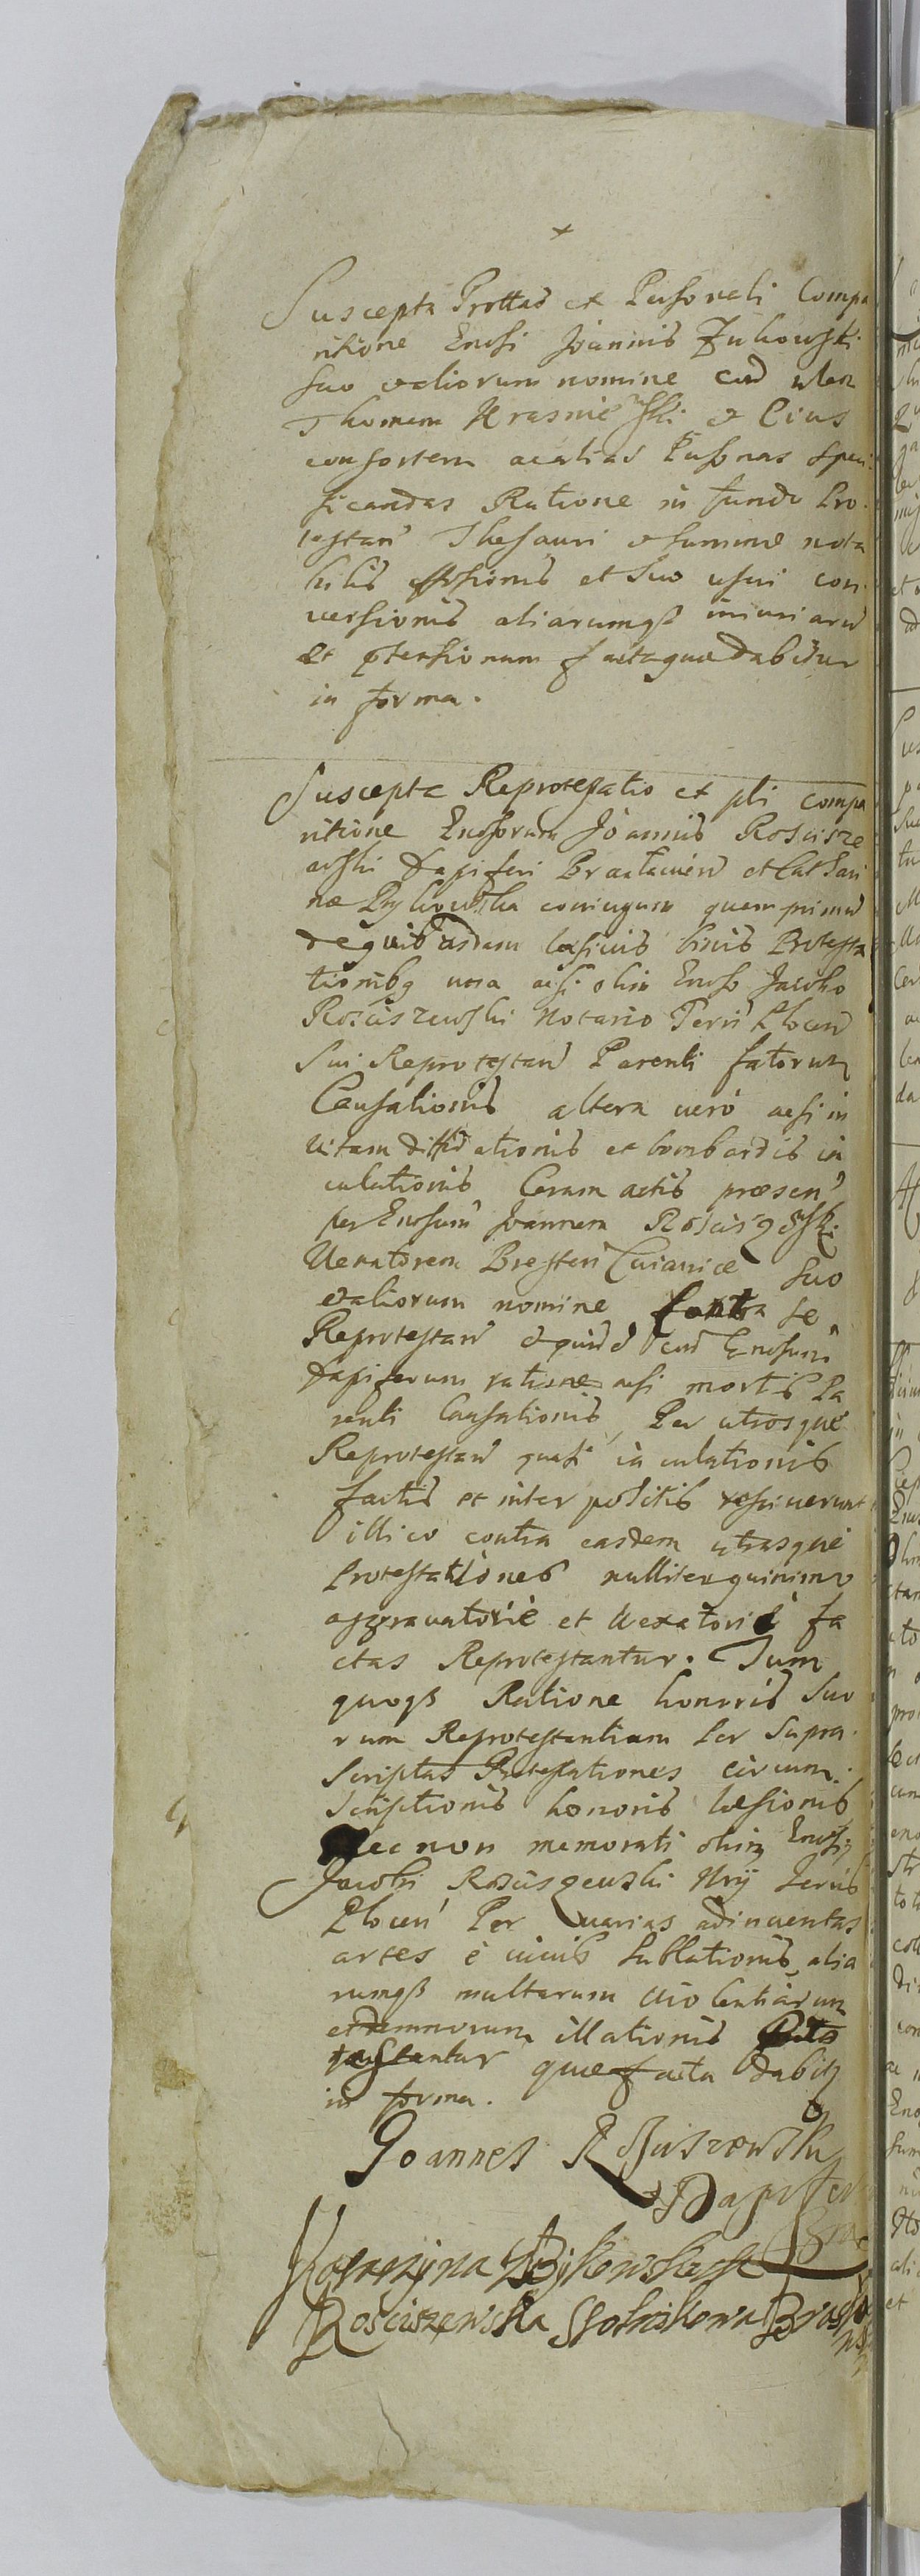 Suscepta Prottas et Personali Compa
ritione Enosi Joannis Zukowski
suo et aliorum nomine cud
Thomam Krasniewski et Eius
consortem ac alias Personas speci
ficandas Ratione in fundo Pro
testan Thesauri et summe nota
bilis et suo usui con
versionis aliarumqß iniuriaru
et ptensionum facta quæ dabitur
in forma.
Suscepta Reprotestatio et pli compa
ritione Enosorum Joannis Roscisze
wski Dapiferi Braclavien et Cathari
næ Bykowska coniugum quem primu
de quibusdam lesivis binis Protesta
tionibq una acsi olim Enoso Jacobo
Rosciszewski Notario Terris Plocen
Sui Reprotestan Parenti fatorum
Causationis altera vero acsi in
vitam diffidationis et bombardis in
culationis Coram actis præsen
per Enosum Joannem Rosciszewski
Venatorem Bresten Cuiaviæ suo
et aliorum nomine Contra se
Reprotestan et quid cud Enosum
Dapiferum ratione acsi mortis Pa
renti Causationis, Per utrosque
Reprotestan quasi in culationis
factis et inter positis resciverunt
illico contra easdem utrasque
Protestationes nulliter quinimo
aggravatorie et vexatorie fa
ctas Reprotestantur. Tum
quoqß Ratione honoris suo
rum Reprotestantium Per supra
scriptas Protestationes circum
scriptionis honoris læsionis
nec non memorati olim Enosi
Jacobi Rosciszewski Nrij Terris
Plocen Per varias adinventas
artes è vivis sublationis, alia
rumqß multarum violentiarum
et damnorum illationis
testantur quæ facta dabitz
in forma.
Joannes Rosciszewski
Dapifer
Brac
Katarzyna Bykowska
Rosciszewska Stolnikowa Bracła